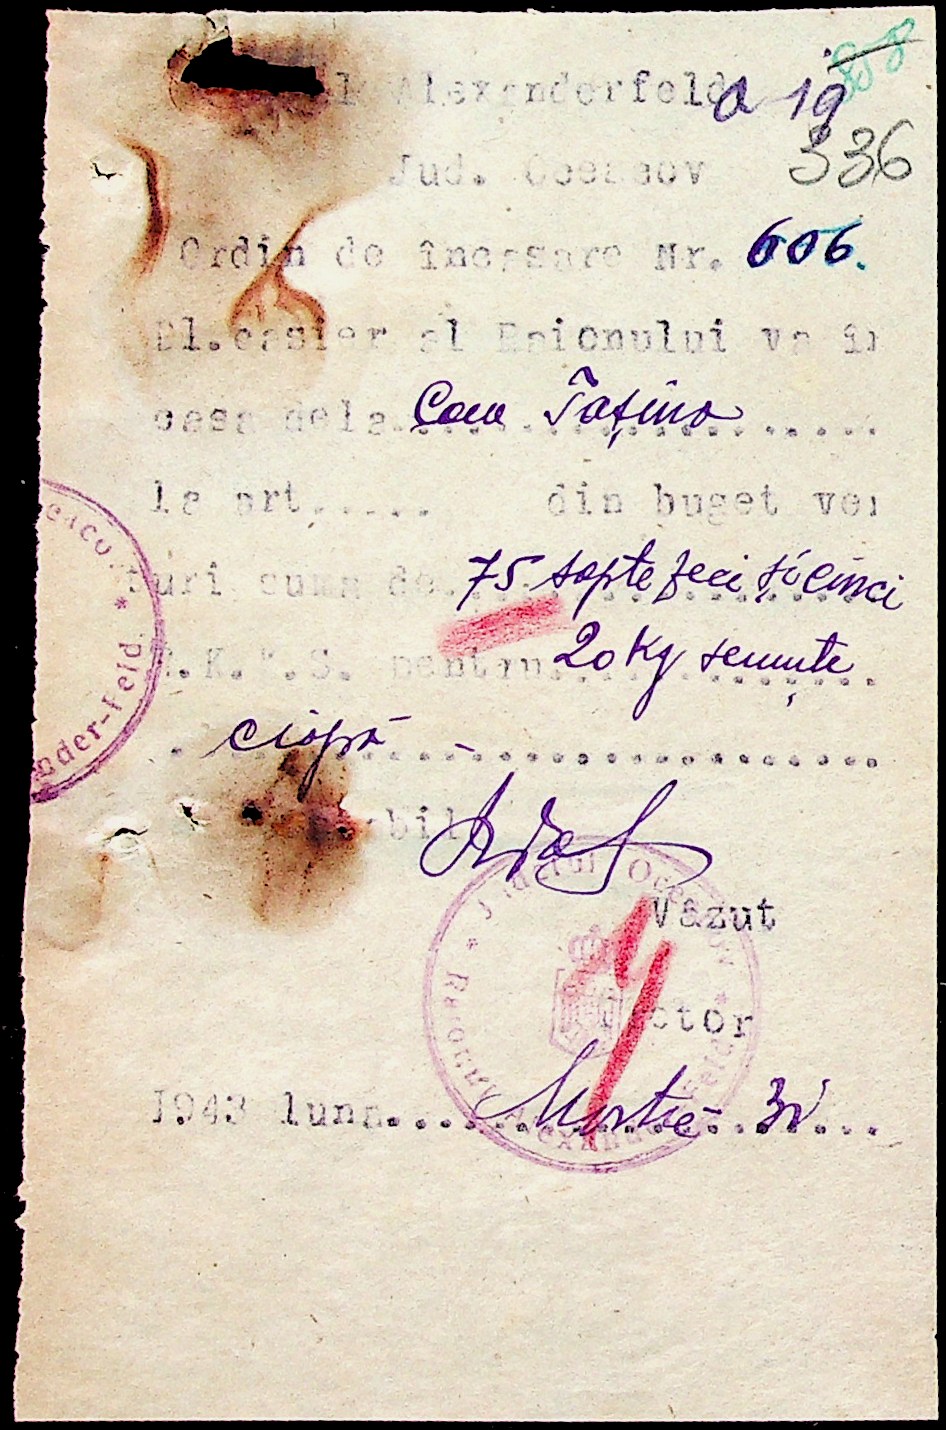 Alexanderfeld
a 19
336
Jud. Oceacov
Ordin de încasare Nr. 606.
Dl.casier al Raionului va în
casa dela.....................
la art..... din buget ven
turi suma de 75 șapte zeci și cinci
R.K.K.S. pentru 20 Kg semințe
ceapă
Văzut
1943 luna Martie 31
Județul Oceacov
Raionul Alexander-Feld